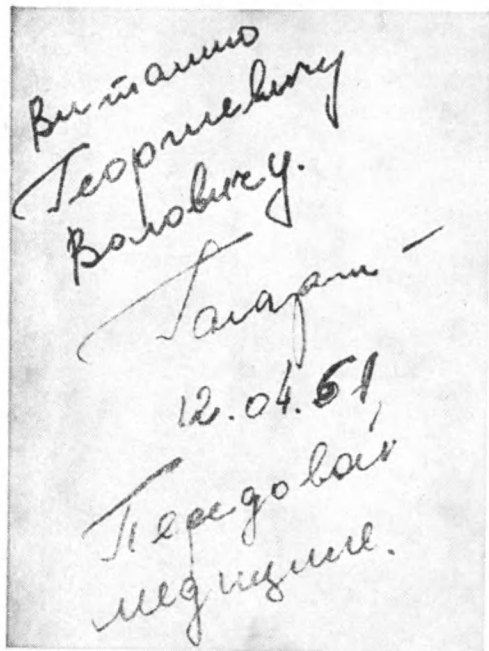 Виталию
Георгиевичу
Воловичу.
Гагарин –
12.04.61,
Передовой
медицине.